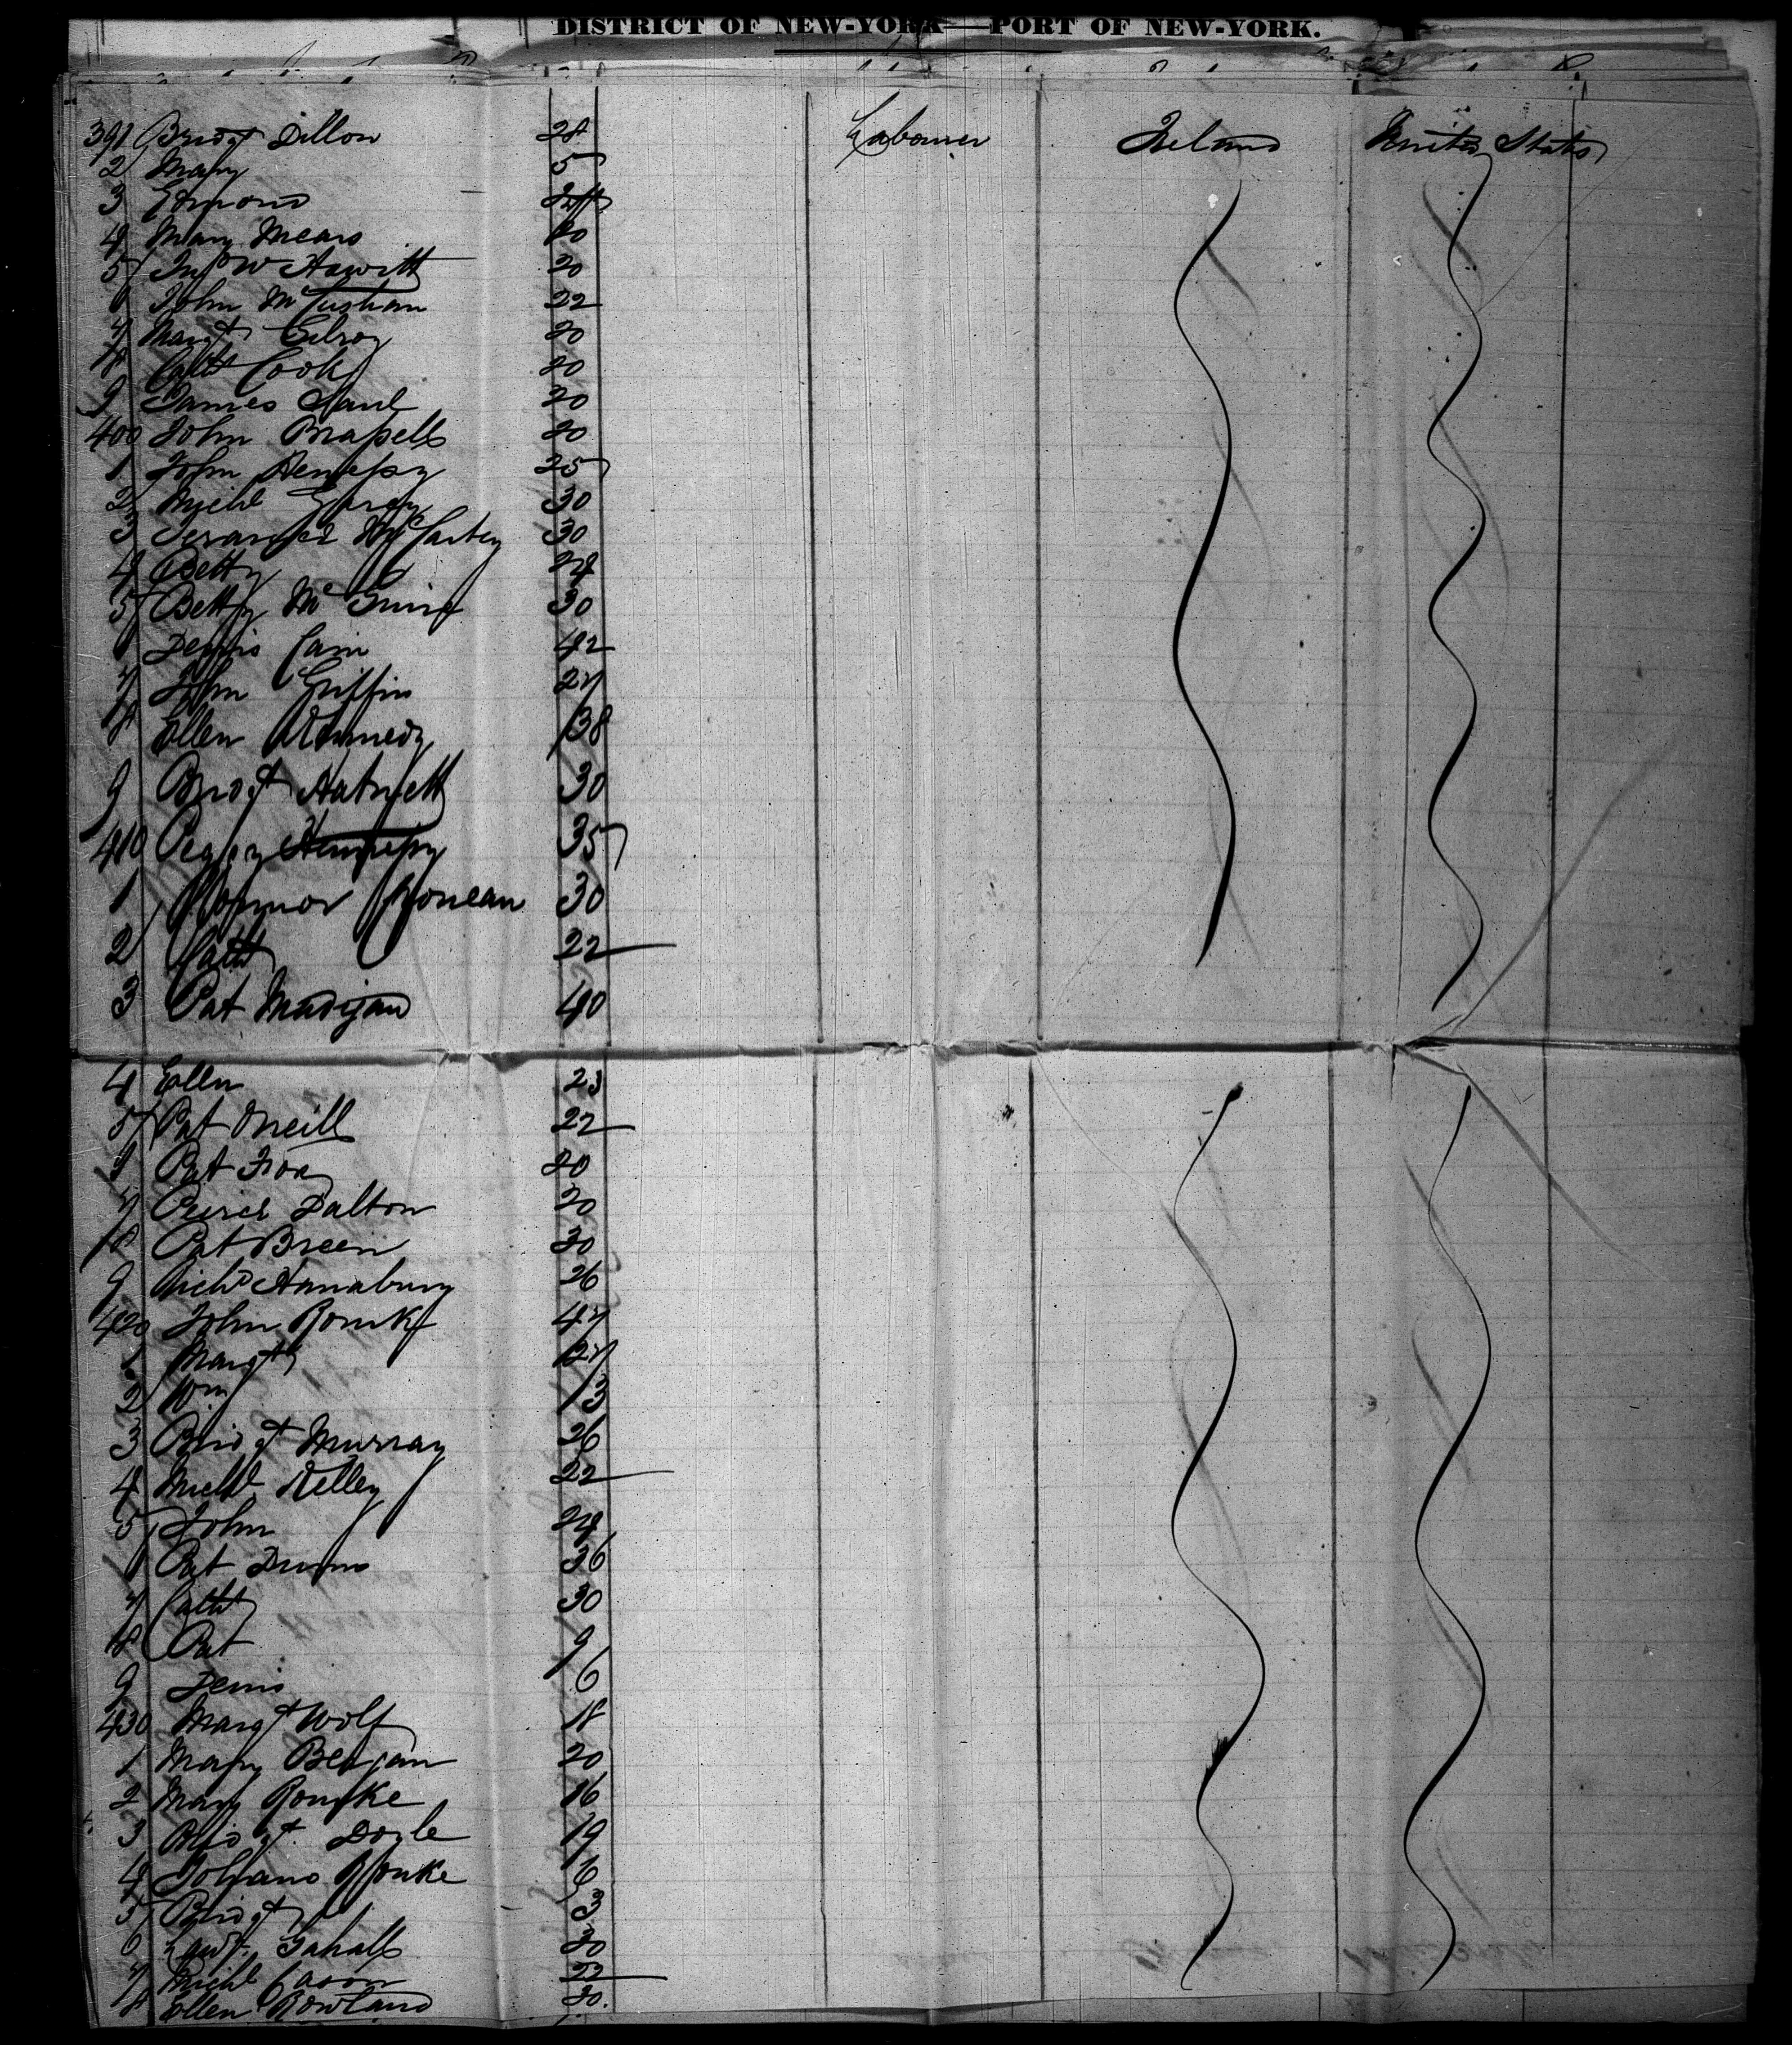 DISTRICT OF NEW-YORK—PORT OF NEW-YORK.
391 Bridgt Dillon 28 Labourer Ireland United States
2 Mary 5
3 Edmond
4 Mary Mears
5 Hewitt 20
6 John 22
7 Margt Gilroy 20
8 Cath Cook 20
9 James Saul 20
400 John Brassell 20
1 John Henessy 25
2 Michl 30
3 McCartey 30
4 Betty 24
5 Betty McGuire 30
6 Dennis Cain 42
7 John Griffin 27
8 Ellen Kennedy 38
9 Bridgt Hatnett 30
410 Peggy Hennessy 35
1 Connor 30
2 Cath 22
3 Pat Madigan 40
4 Ellen 23
5 Pat Oneill 22
6 Pat 20
7 Pierce Dalton 20
8 Pat Breen 30
9 Richd Hanabury 26
420 John Rourke 47
1 Margt 27
2 Wm 13
3 Bridgt Murray 26
4 Michl Kelley 22
5 John 24
6 Pat 36
7 Cath 30
8 Pat 9
9 Denis 6
430 Margt Wolf 18
1 Mary Bergan 20
2 Mary Rourke 16
3 Bridgt Doyle 19
4 Johano Rourke 6
5 Bridgt 3
6 Gahall 30
7 Michl Cason 22
8 Ellen Rowland 20.